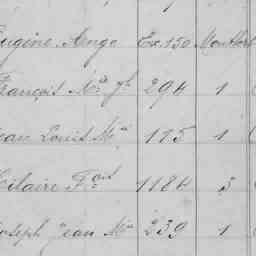 Eugène Ange Ex. 150 Montfort
François Mie 294 1
Jean Louis Mie 115 1
Hilaire Fçois 1184 3
Joseph Jean Mie 239 1